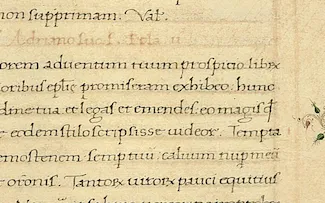 non supprimam. Vale.
Adriano suo S. Peta u
orem aduentum tuum prospicio librꝝ
oribus eptis promiseram exhibeo. hunc
dine tua et legas et emendes. eo magis q
t eodem stilo scripsisse uideor. Tempta
emostenem semp tuũ. caluum nup meũ
t orõnis. Tantorꝝ uirorꝝ pauci equitius